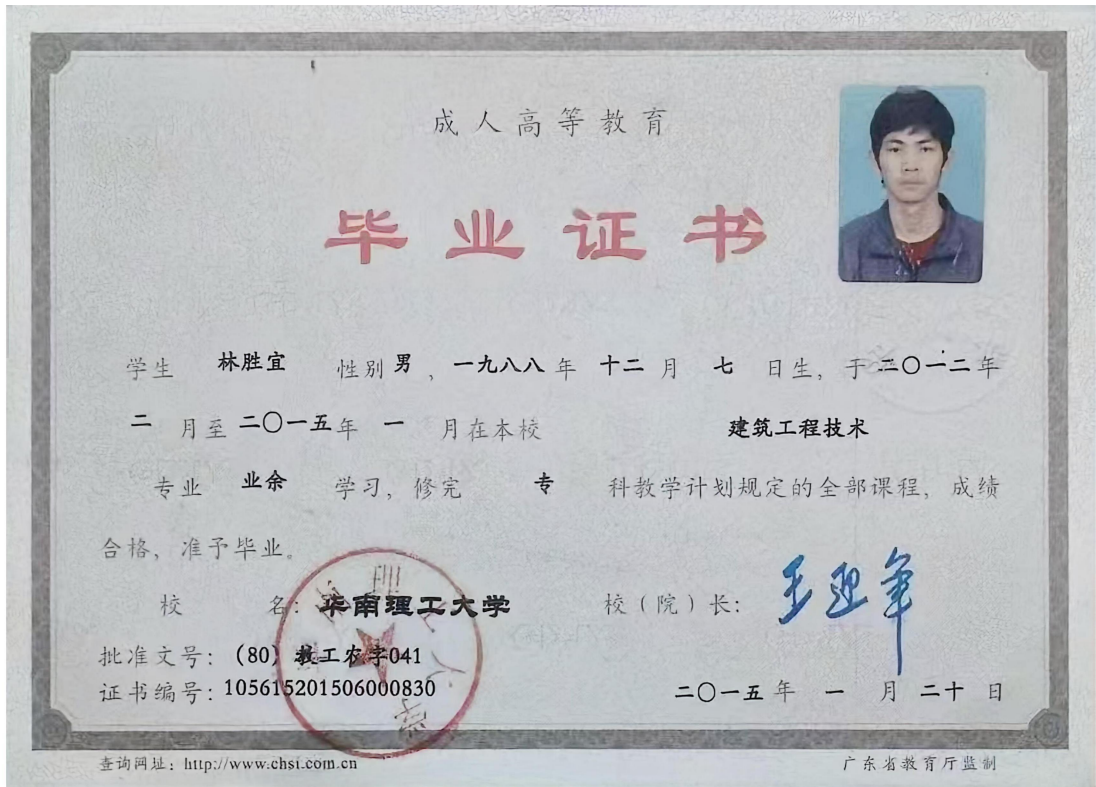 成人高等教育
毕业证书
学生 林胜宜 性别 男 ，一九八八年 十二 月 七 日生，于二〇一二年
二 月至 二〇一五年 一 月在本校 建筑工程技术
专业 业余 学习，修完 专 科教学计划规定的全部课程，成绩
合格，准予毕业。
校 名：华南理工大学 校（院）长：王迎军
批准文号：（80）教工农字041
证书编号：105615201506000830 二〇一五年 一 月 二十 日
查询网址：http://www.chsi.com.cn 广东省教育厅监制